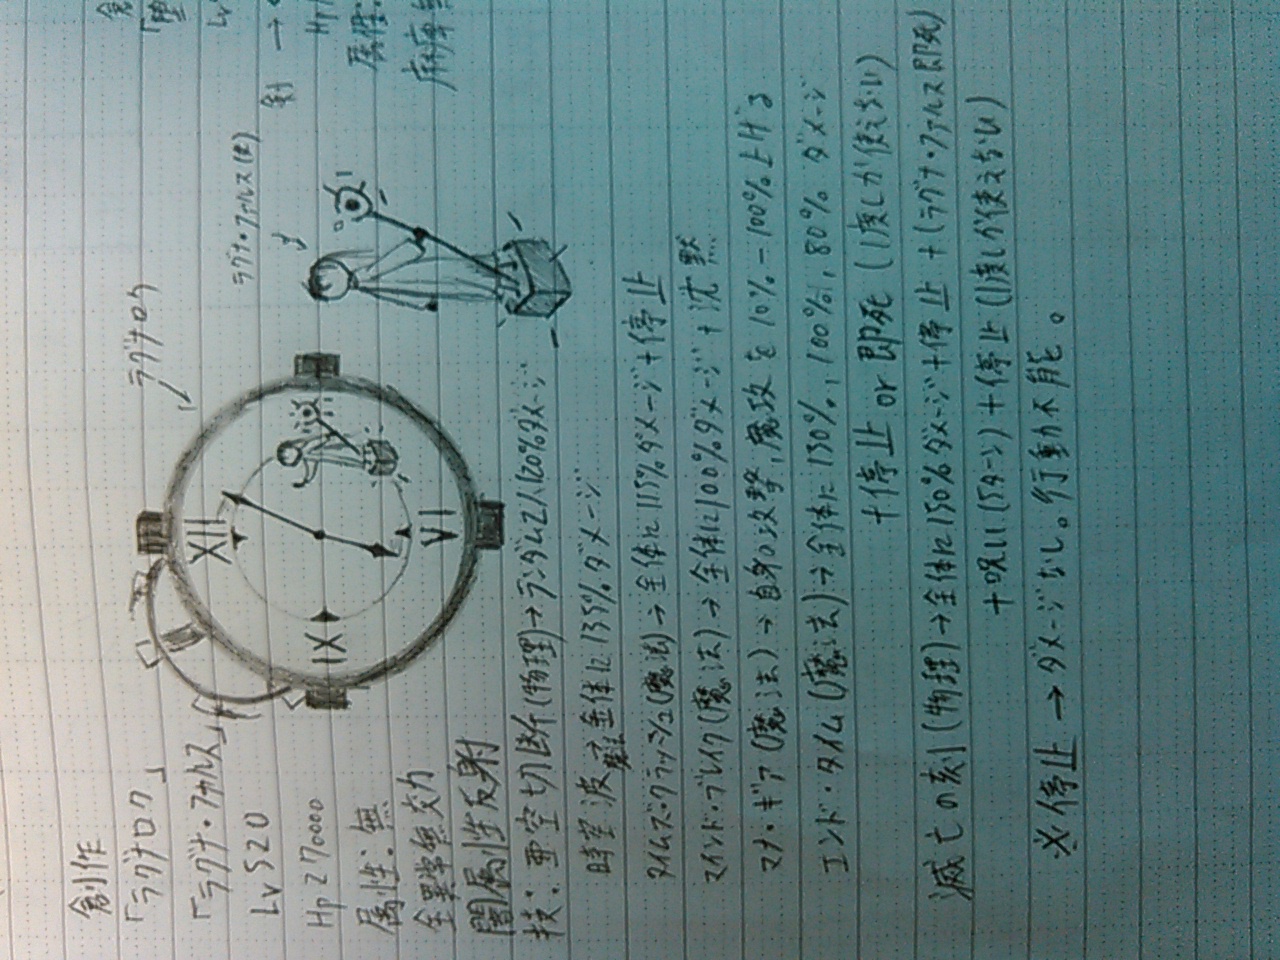 創作
「ラグナロク」
「ラグナ・ファルス」
Lv 520
Hp 270000
属性:無
全異常無効
闇属性反射
技:亜空切断(物理)→ランダムに2人120%ダメージ
時空波→全体に135%ダメージ
タイムズ・クラッシュ(魔法)→全体に115%ダメージ+停止
マインド・ブレイク(魔法)→全体に100%ダメージ+沈黙
マナ・ギア(魔法)→自身の攻撃,魔攻を10%-100%上げる
エンド・タイム(魔法)→全体に130%,100%,80%ダメージ
+停止 or 即死(1度しか使えない)
滅亡の刻(物理)→全体に150%ダメージ+停止+(ラグナ・ファルス即死)
+呪い(5ターン)+停止(1度しか使えない)
※停止→ダメージなし。行動不能。
ラグナロク
ラグナ・ファルス
XII
VI
IX
創
「堕
Lv
剣→
Hp
属性:
麻痺